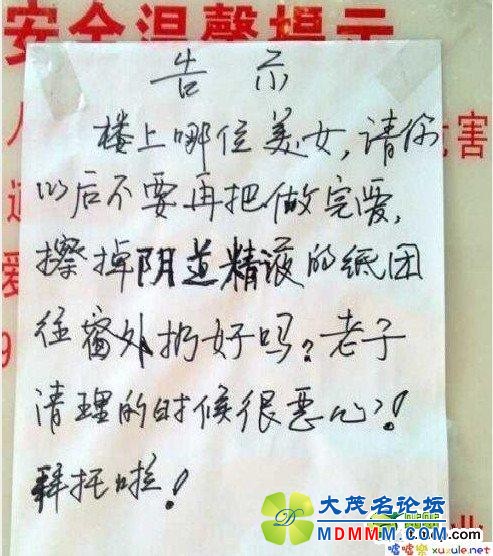 安全温馨提示
告示
楼上哪位美女，请你
以后不要再把做完爱，
擦掉阴道精液的纸团
往窗外扔好吗？老子
清理的时候很恶心！
拜托啦！
害
爱
9
大茂名论坛
MDMMM.COM
.com
嘻嘻乐 xuxule.net